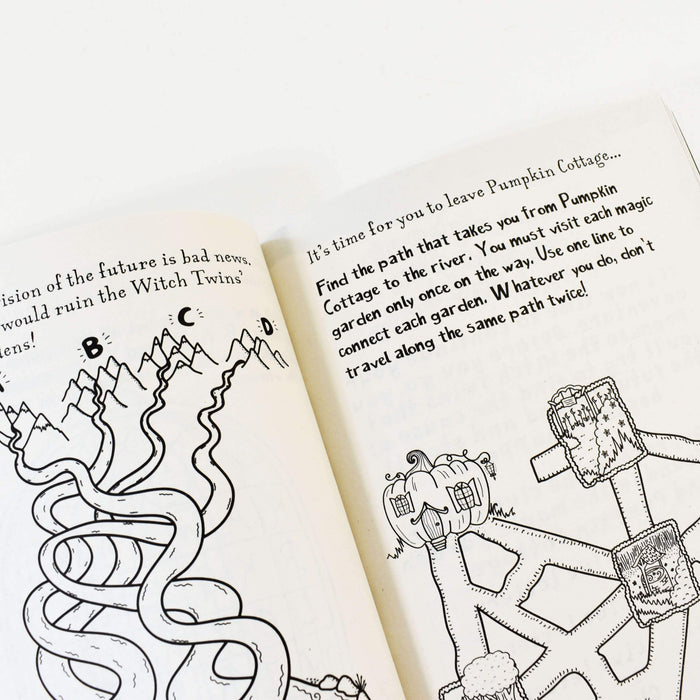 ision of the future is bad news.
would ruin the Witch Twins'
ens!
B
C
D
It's time for you to leave Pumpkin Cottage...
Find the path that takes you from Pumpkin
Cottage to the river. You must visit each magic
garden only once on the way. Use one line to
connect each garden. Whatever you do, don't
travel along the same path twice!